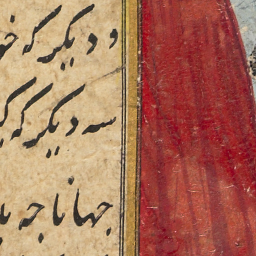 و دیگر که
سه دیگر که
جهانا چه